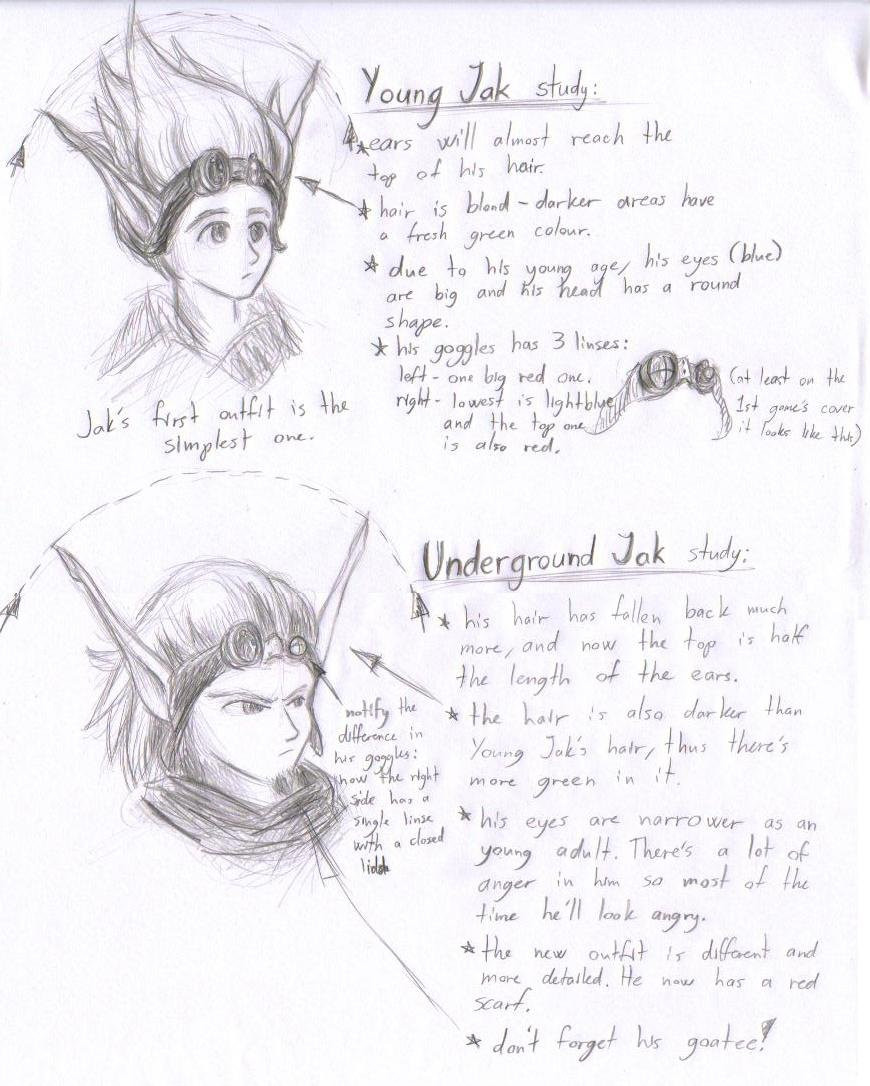 Young Jak study:
ears will almost reach the
top of his hair.
hair is blond - darker areas have
a fresh green colour.
due to his young age, his eyes (blue)
are big and his head has a round
shape.
his goggles has 3 linses:
left - one big red one.
right - lowest is lightblue
and the top one
is also red.
(at least on the
1st game's cover
it looks like this)
Jak's first outfit is the
simplest one.
Underground Jak study:
his hair has fallen back much
more, and now the top is half
the length of the ears.
the hair is also darker than
Young Jak's hair, thus there's
more green in it.
his eyes are narrower as an
young adult. There's a lot of
anger in him so most of the
time he'll look angry.
the new outfit is different and
more detailed. He now has a red
scarf.
don't forget his goatee!
notify the
difference in
his goggles:
now the right
side has a
single linse
with a closed